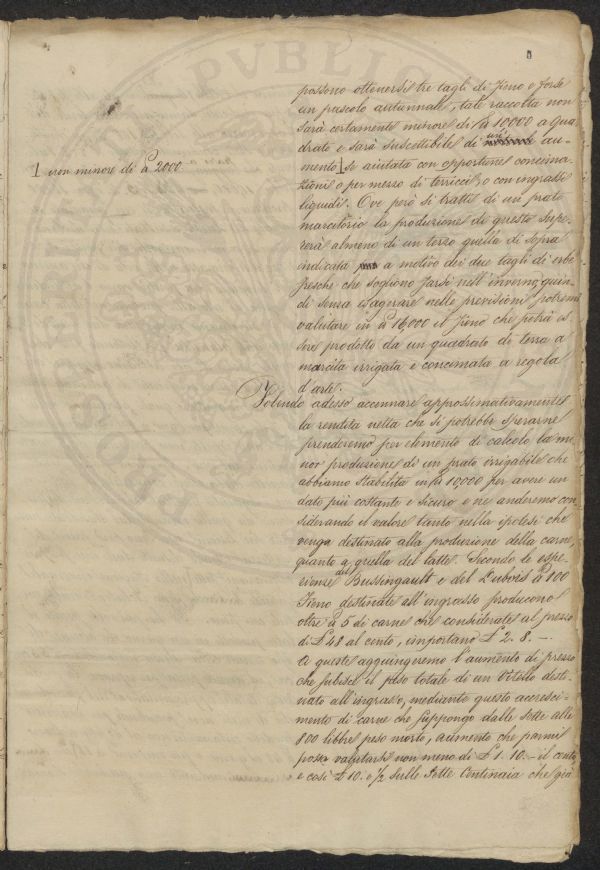 possono ottenersi tre tagli di fieno e forse
un pascolo autunnale, tale raccolta non
sarà certamente minore di ℔ 10,000 a Qua
drato e sarà suscettibile di un au-
mento 1 se aiutata con opportune concima
zioni o per mezzo di terricci, o con ingrassi
liquidi. Ove però si tratti di un prato
marcitorio la produzione di questo supe
rerà almeno di un terzo quella di sopra
indicata a motivo dei due tagli di erbe
fresche che sogliono farsi nell'inverno, quin
di senza esagerare nelle previsioni potremo
valutare in ℔ 16,000 il fieno che potrà es
sere prodotto da un quadrato di terra a
marcita irrigata e concimata a regola
d'arte.
1 non minore di ℔ 2000
Volendo adesso accennare approssimativamente
la rendita netta che si potrebbe sperarne
prenderemo per elemento di calcolo la mi
nor produzione di un prato irrigabile che
abbiamo stabilita in ℔ 10,000 per avere un
dato più costante e sicuro e ne anderemo con
siderando il valore tanto nella ipotesi che
venga destinato alla produzione della carne
quanto a quella del latte. Secondo le espe
rienze del Bussingault e del Dubois ℔ 100
fieno destinate all'ingrasso producono
oltre ℔ 5 di carne che considerate al prezzo
di £ 48 al cento, importano £ 2. 8. -.
A queste aggiungeremo l'aumento di prezzo
che subisce il peso totale di un Vitello desti
nato all'ingrasso, mediante questo accresci-
mento di carne che suppongo dalle sette alle
800 libbre peso morto, aumento che parmi
possa valutarsi non meno di £ 1. 10. - il cento
e così £ 10. e 1/2 sulle sette Centinaia che già
PVBLIC